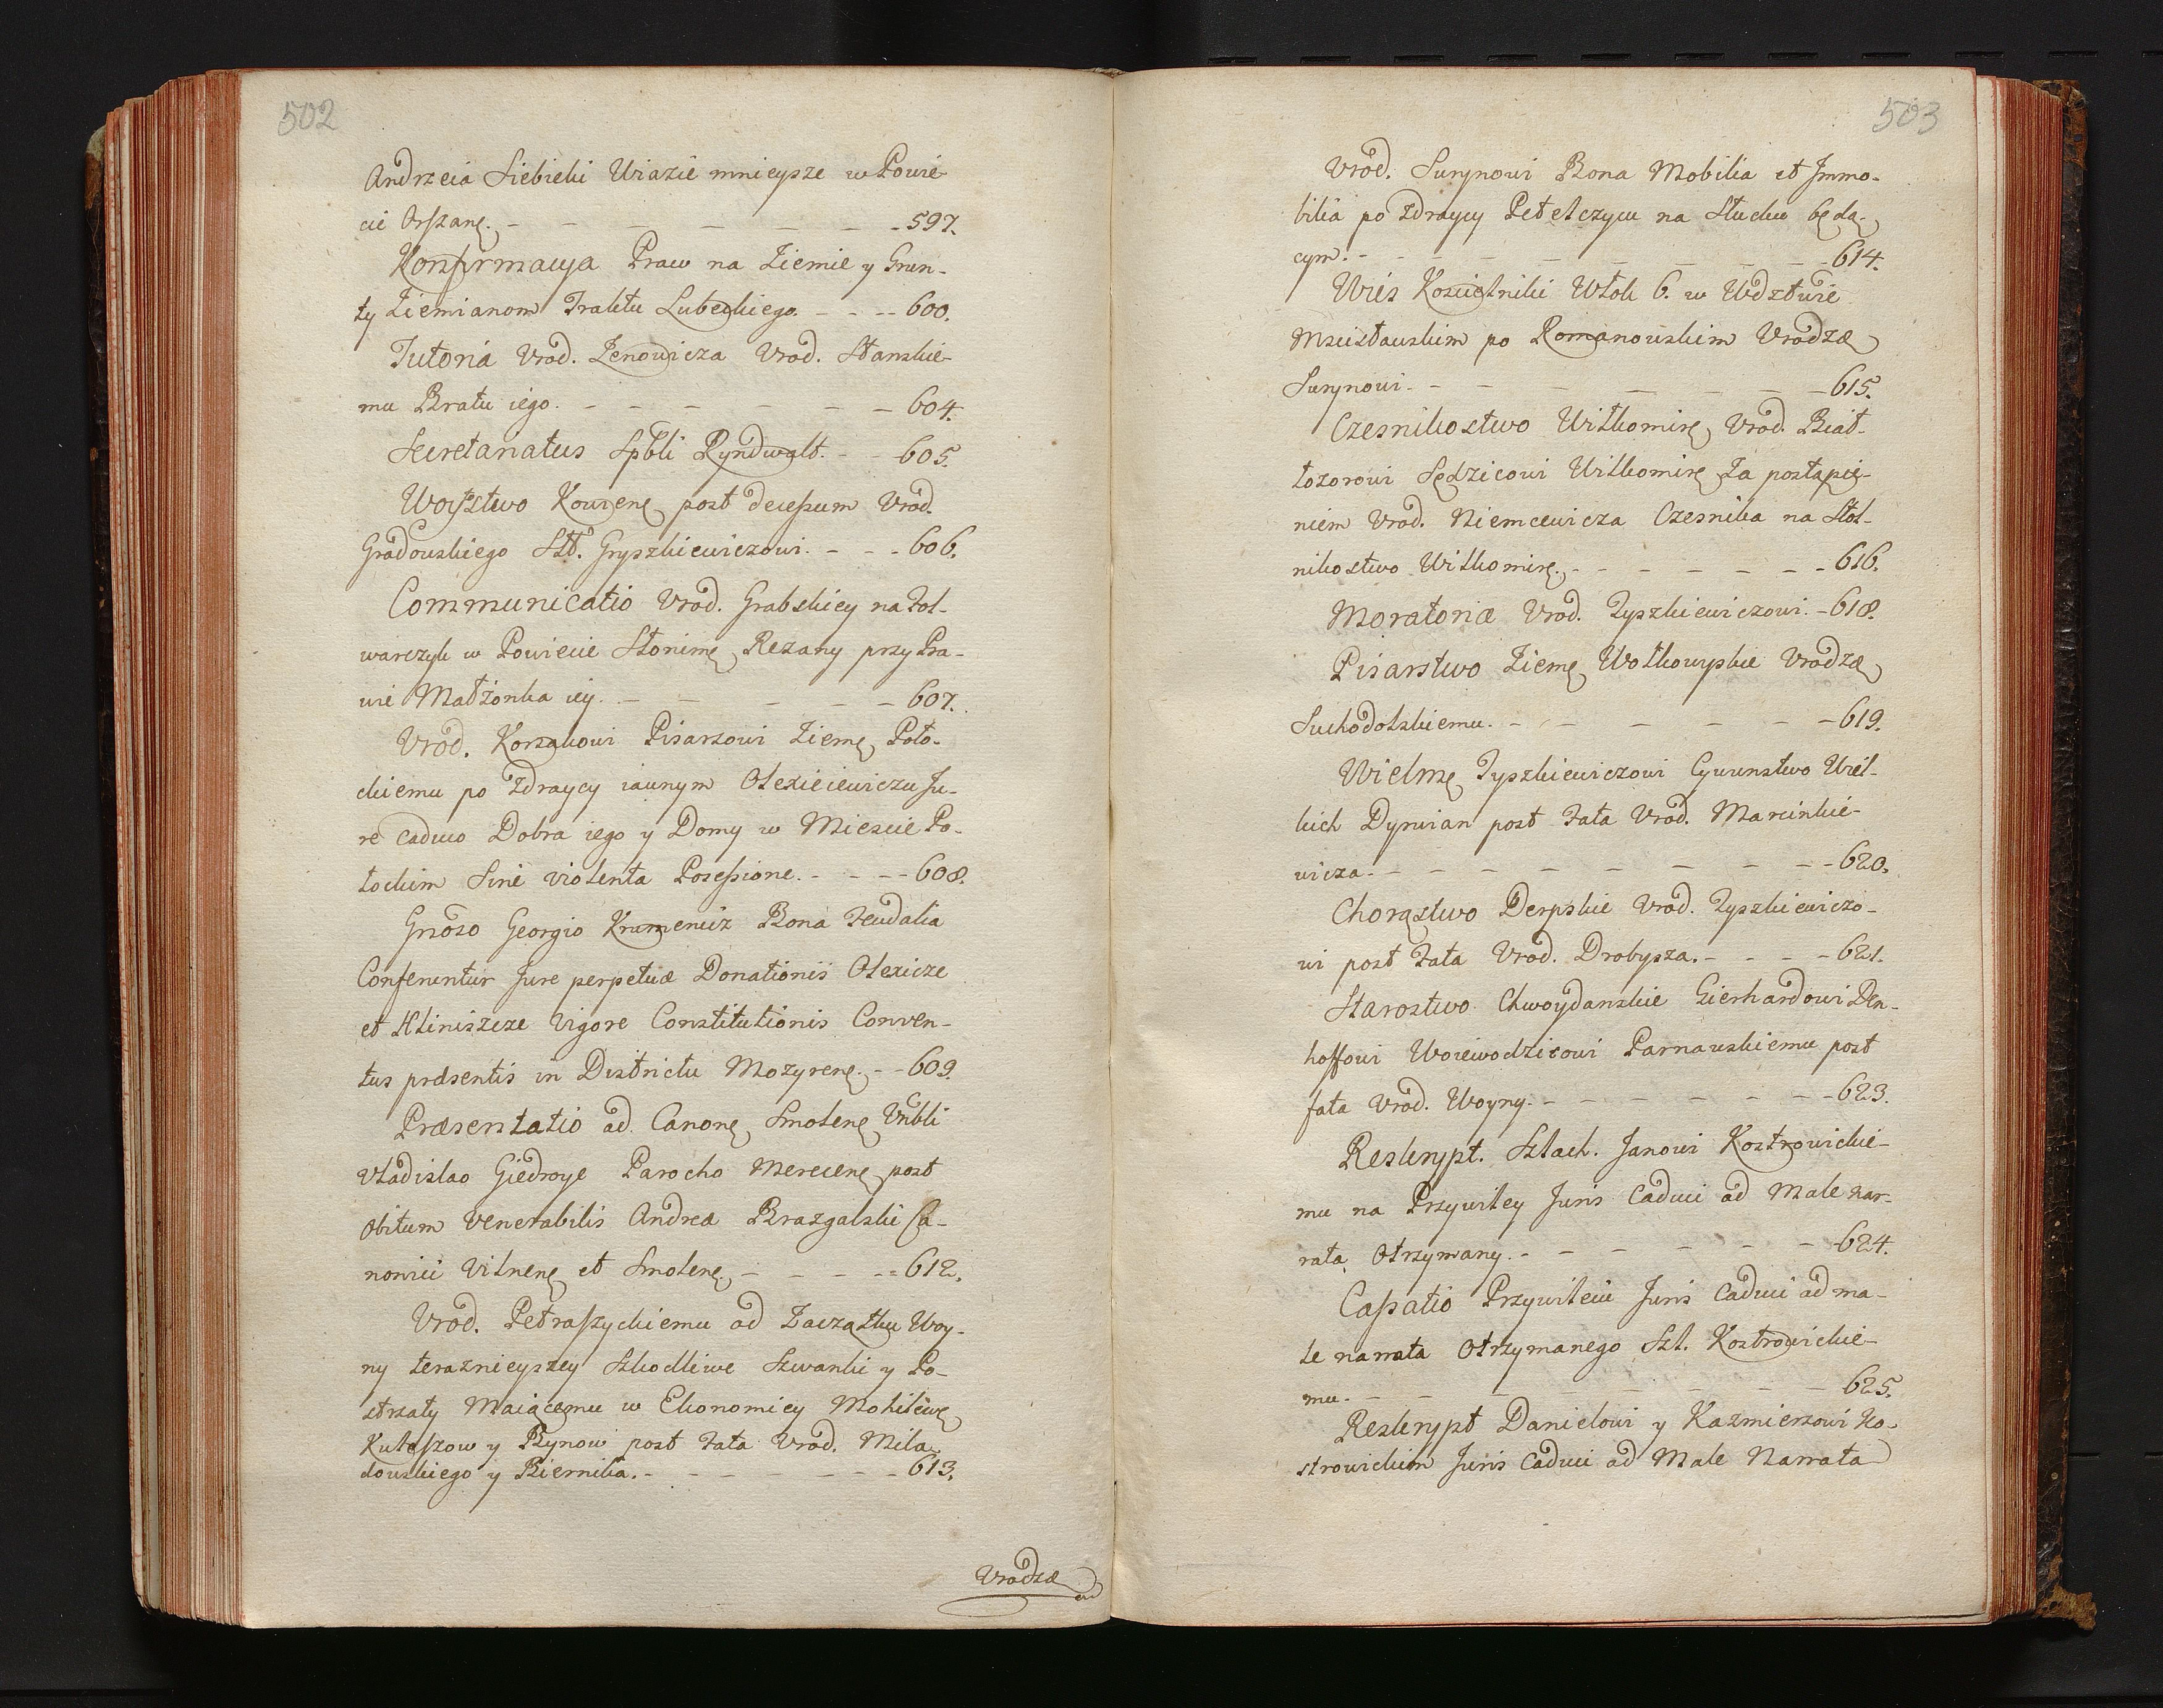 502
Andrzeia Siebieki Uiazie mnieysze w Powie-
cie Orszanẹ. - - - - - - - 597.
Konfirmacya Praw na Ziemie y Grun-
ty Ziemianom Traktu Lubeckiego. - - - - 600.
Tutoria Vrod. Zenowicza Vrod. Stanskie-
mu Bratu iego. - - - - - - 604.
Secretariatus Spbli Ryndwalt. - - 605.
Woystwo Kowenẹ post decessum Vrod.
Gradowskiego Szt. Gryszkiewiczowi. - - - 606.
Communicatio Vrod. Grabskiey na Fol-
warczyk w Powiecie Słonimẹ Rezany przy Pra-
wie Małżonka iey. - - - - - 607.
Vrod. Korsakowi Pisarzowi Ziemẹ Poło-
ckiemu po Zdraycy iawnym Olexieiewiczu Ju-
re caduco Dobra iego y Domy w Miescie Po-
łockim Sine violenta Possessione. - - - - 608.
Gnoso Georgio Krumenicz Bona Feudalia
Conferuntur Jure perpetuæ Donationis Olexicze
et Hliniszcze Vigore Constitutionis Conven-
tus præsentis in Districtu Mozyrenẹ. - - 609.
Præsentatio ad Canonẹ Smolenẹ Vnbli
Vladislao Giedroyc Parocho Merecenẹ post
Obitum Venerabilis Andreæ Brazgalski Ca-
nonici Vilnenẹ et Smolenẹ. - - - - - 612.
Vrod. Petraszyckiemu od Zaczątku Woy-
ny teraznieyszey Szkodliwe Szwanki y Po-
strzały Maiącemu w Ekonomiey Mohilewẹ
Kutaszow y Bynow post Fata Vrod. Mila-
dowskiego y Biernika. - - - - - - - 613.
Vrodzæ
503
Vrod. Surynowi Bona Mobilia et Immo-
bilia po Zdraycy Petelczycu na Słucku będą-
cym. - - - - - - - - - - 614.
Wies Koscielniki Włok 6. w Wdztwie
Mscisławskim po Romanowskim Vrodzæ
Surynowi. - - - - - - - 615.
Czesnikostwo Wiłkomirẹ Vrod. Biał-
łozorowi Sędzicowi Wiłkomirẹ Za postąpie-
niem Vrod. Niemcewicza Czesnika na Stol-
nikostwo Wiłkomirẹ. - - - - - - - 616.
Moratoriæ Vrod. Tyszkiewiczowi. - 618.
Pisarstwo Ziemẹ Wołkowyskie Vrodzæ
Suchodolskiemu. - - - - - - 619.
Wielmẹ Tyszkiewiczowi Cywunstwo Wiel-
kich Dyrwian post Fata Vrod. Marcinkie-
wicza. - - - - - - - - - 620.
Chorąstwo Derpskie Vrod. Tyszkiewiczo-
wi post Fata Vrod. Drobysza. - - - - 621.
Starostwo Chwoydanskie Gierhardowi Den-
hoffowi Woiewodzicowi Parnawskiemu post
fata Vrod. Woyny. - - - - - - - 623.
Reskrypt. Szlach. Janowi Kostrowickie-
mu na Przywiley Juris Caduci ad Male nar-
rata Otrzymany. - - - - - - - 624.
Cassatio Przywileiu Juris Caduci ad ma-
le narrata Otrzymanego Szl. Kostrowickie-
mu. - - - - - - - - - 625.
Reskrypt Danielowi y Kazmierzowi Ko-
strowickim Juris Caduci ad Male Narrata